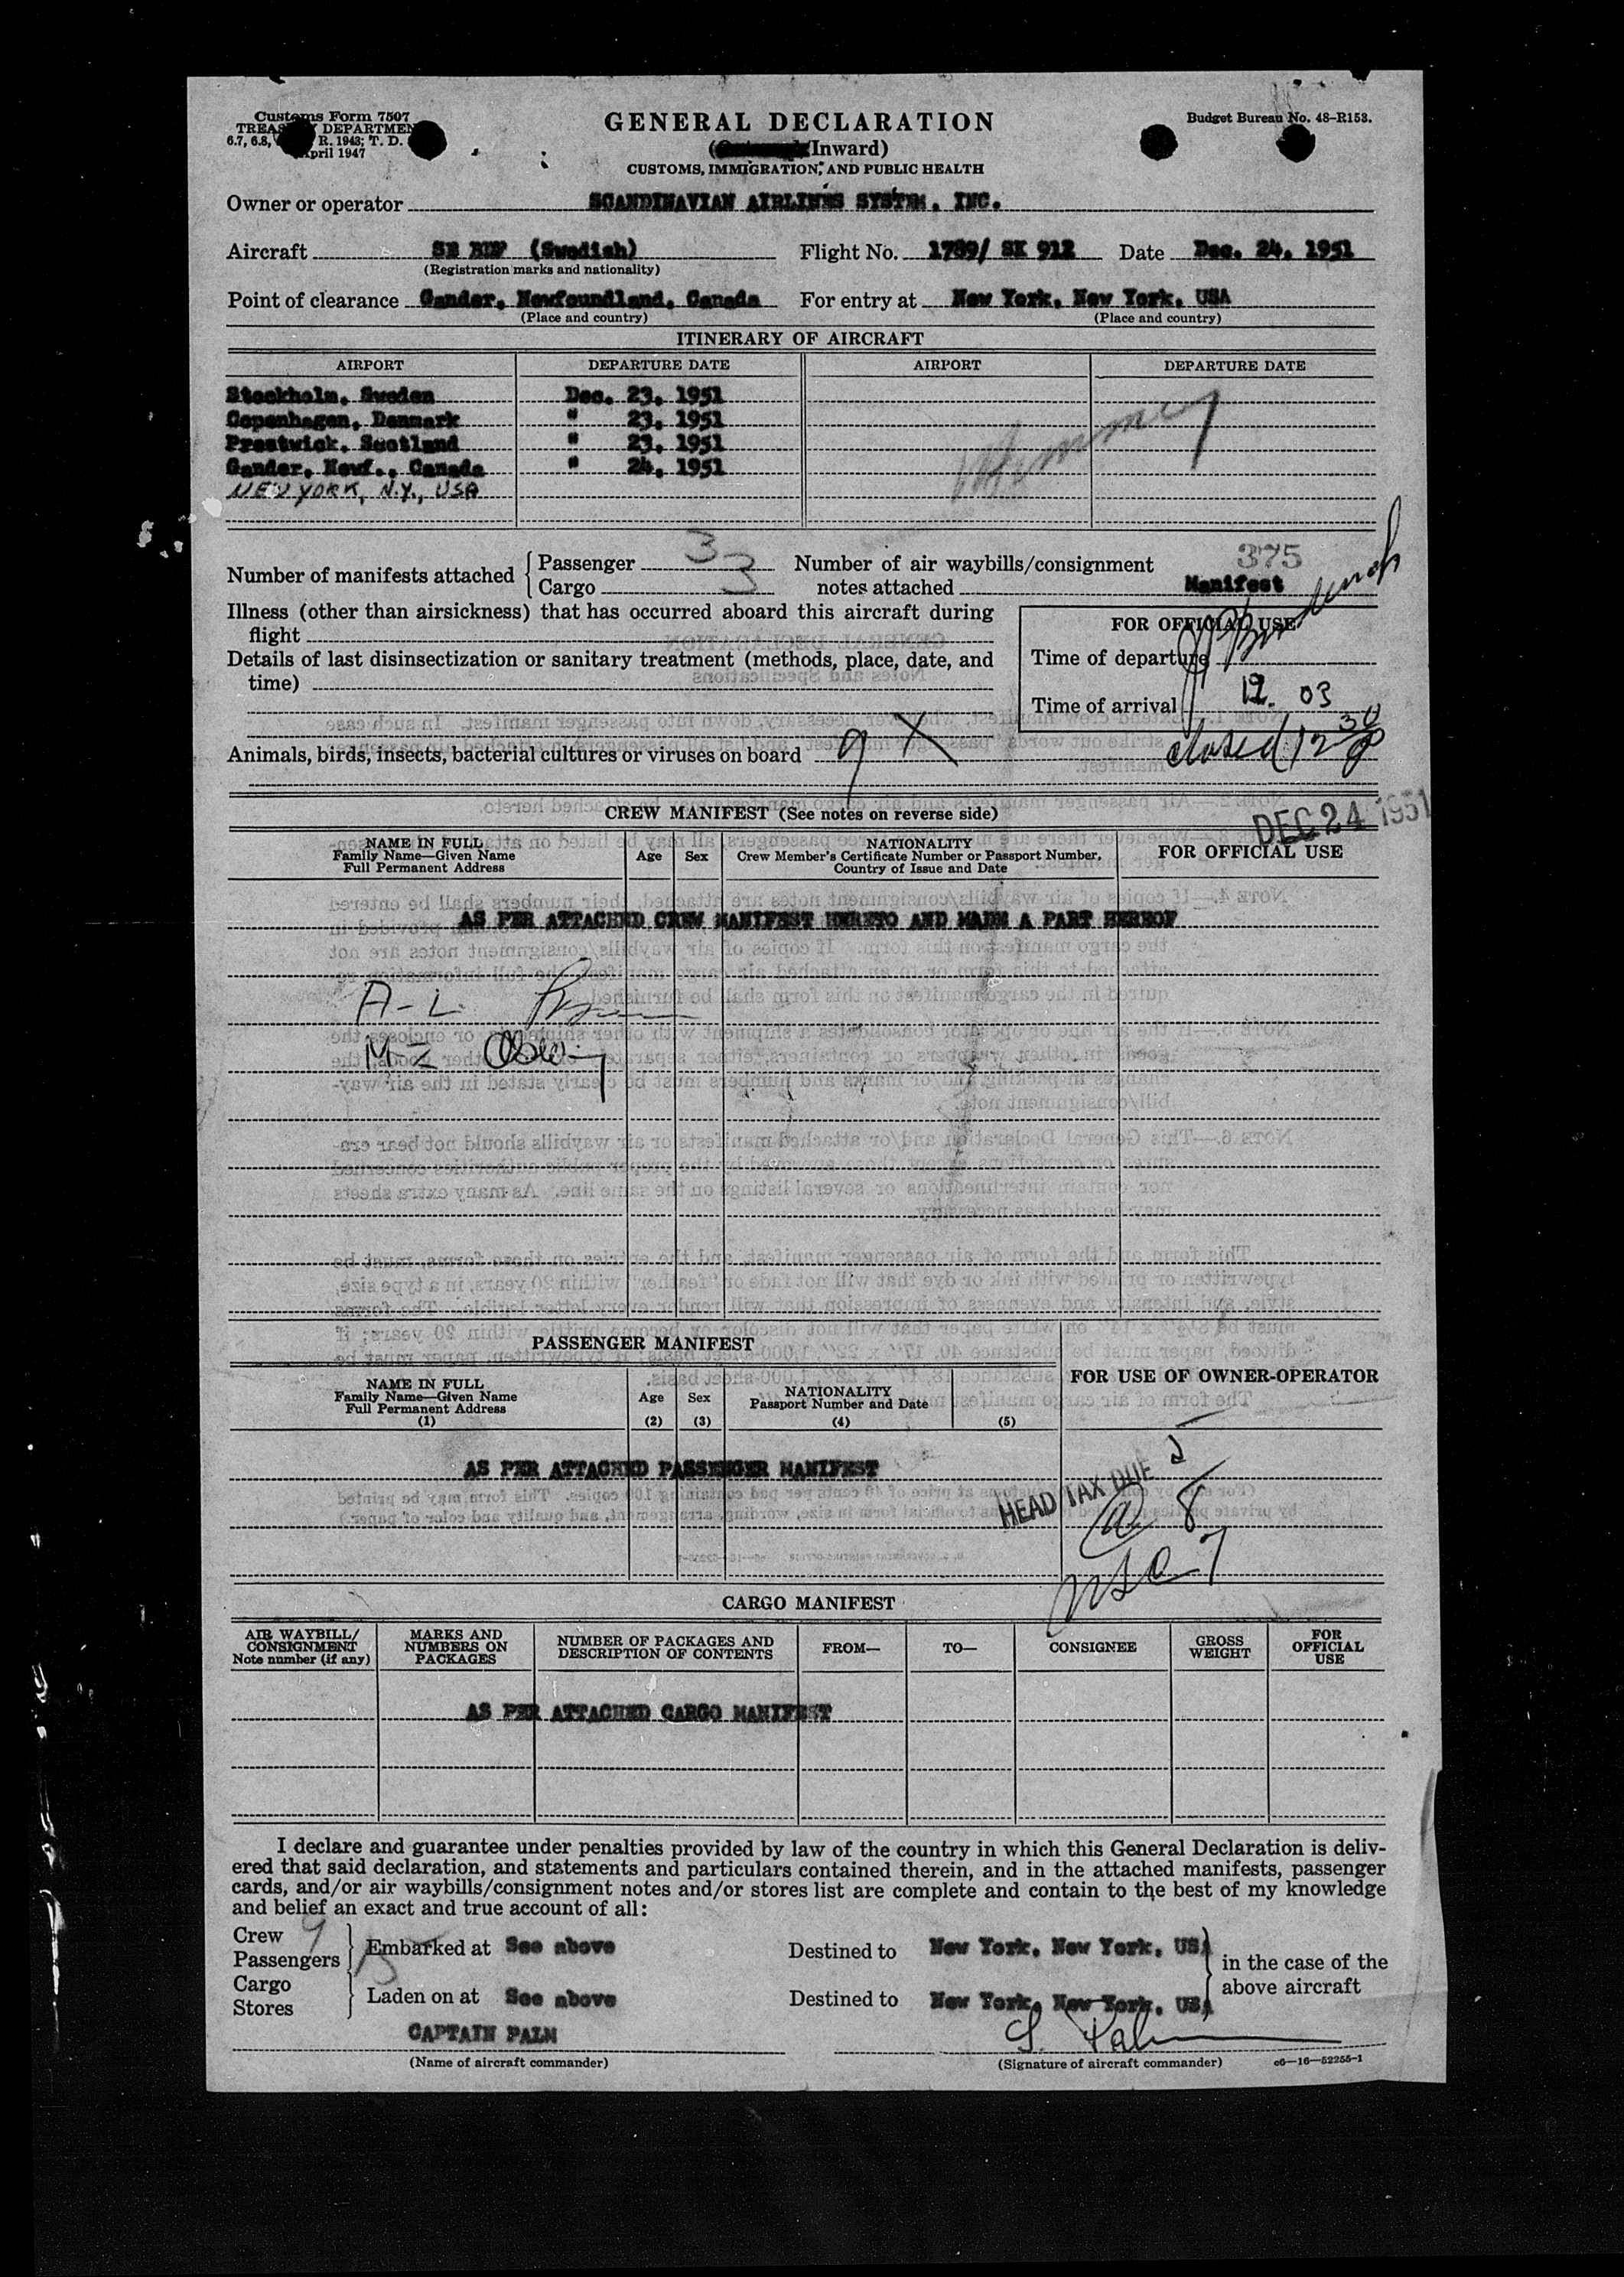 Customs Form 7507
TREASURY DEPARTMENT
6.7, 6.8, R. 1943; T. D.
April 1947
GENERAL DECLARATION
Inward)
CUSTOMS, IMMIGRATION, AND PUBLIC HEALTH
Budget Bureau No. 48-R153.
Owner or operator SCANDINAVIAN AIRLINES SYSTEM, INC.
Aircraft SE (Swedish) Flight No. 1789/ SK 912 Date Dec. 24, 1951
(Registration marks and nationality)
Point of clearance Gander, Newfoundland, Canada For entry at New York, New York, USA
(Place and country) (Place and country)
ITINERARY OF AIRCRAFT
AIRPORT DEPARTURE DATE AIRPORT DEPARTURE DATE
Stockholm, Sweden Dec. 23, 1951
Copenhagen, Denmark " 23, 1951
Prestwick, Scotland " 23, 1951
Gander, Newf., Canada " 24, 1951
NEW YORK, N.Y., USA
Number of manifests attached { Passenger 3 Number of air waybills/consignment 375
Cargo 3 notes attached Manifest
Illness (other than airsickness) that has occurred aboard this aircraft during
flight
FOR OFFICIAL USE
Details of last disinsectization or sanitary treatment (methods, place, date, and
time)
Time of departure
Time of arrival 12. 03
closed 12 30
Animals, birds, insects, bacterial cultures or viruses on board 9 X
DEC 24 1951
CREW MANIFEST (See notes on reverse side)
NAME IN FULL
Family Name—Given Name
Full Permanent Address
Age Sex
NATIONALITY
Crew Member's Certificate Number or Passport Number,
Country of Issue and Date
FOR OFFICIAL USE
AS PER ATTACHED CREW MANIFEST HERETO AND MADE A PART HEREOF
A-L
M-Z
PASSENGER MANIFEST
NAME IN FULL
Family Name—Given Name
Full Permanent Address
(1)
Age
(2)
Sex
(3)
NATIONALITY
Passport Number and Date
(4) (5)
FOR USE OF OWNER-OPERATOR
AS PER ATTACHED PASSENGER MANIFEST
HEAD TAX DUE 5
@ 8
USC 7
CARGO MANIFEST
AIR WAYBILL/
CONSIGNMENT
Note number (if any)
MARKS AND
NUMBERS ON
PACKAGES
NUMBER OF PACKAGES AND
DESCRIPTION OF CONTENTS
FROM— TO— CONSIGNEE
GROSS
WEIGHT
FOR
OFFICIAL
USE
AS PER ATTACHED CARGO MANIFEST
I declare and guarantee under penalties provided by law of the country in which this General Declaration is deliv-
ered that said declaration, and statements and particulars contained therein, and in the attached manifests, passenger
cards, and/or air waybills/consignment notes and/or stores list are complete and contain to the best of my knowledge
and belief an exact and true account of all:
Crew 9
Passengers 15 Embarked at See above Destined to New York, New York, USA
in the case of the
above aircraft
Cargo
Stores Laden on at See above Destined to New York, New York, USA
CAPTAIN PALM S. Palm
(Name of aircraft commander) (Signature of aircraft commander) c6—16—52255-1